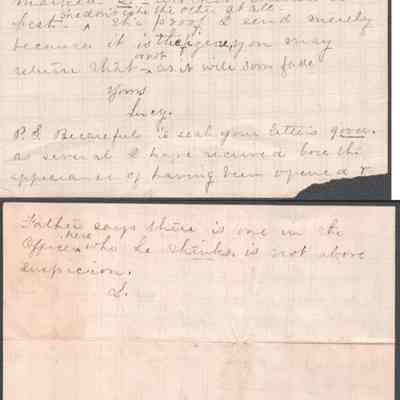 best. I don't like the other at all.
The proof I send merely
because it is the pigeon, you may
return that or not as it will soon fade
Yours
Lucy.
P.S. Be careful to seal your letters good.
as several I have received bore the
appearance of having been opened &
Father says there is one in the
Office here who he thinks is not above
suspicion.
L.